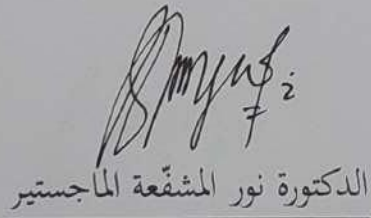 الدكتورة نور المشفّعة الماجستير